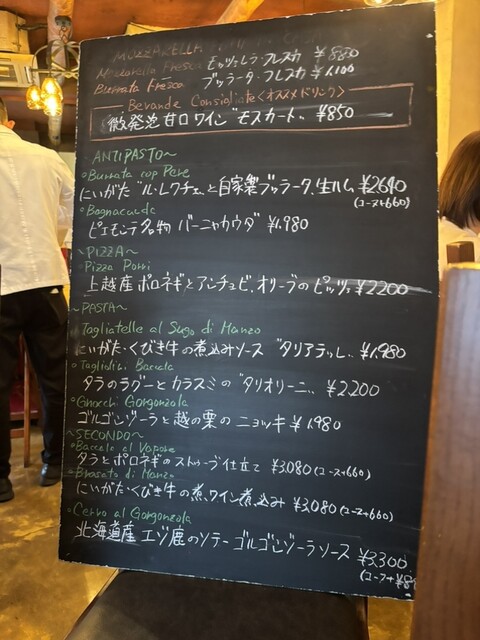 MOZZARELLA
Mozzarella Fresca モッツァレラ・フレスカ ¥880
Burrata Fresca ブッラータ・フレスカ ¥1,100
Bevande Consigliate〈オススメドリンク〉
微発泡 甘口 ワイン "モスカート" ¥850
ANTIPASTO~
Burrata con Pere
にいがた "ル・レクチェ"と自家製ブッラータ、生ハム ¥2640
(コース+660)
Bagnacauda
ピエモンテ名物 バーニャカウダ ¥1,980
~PIZZA~
Pizza Porri
上越産 ポロネギとアンチョビ、オリーブのピッツァ ¥2200
~PASTA~
Tagliatelle al Sugo di Manzo
にいがた・くびき牛の煮込みソース "タリアテッレ" ¥1,980
Tagliolini
タラのラグーとカラスミの "タリオリーニ" ¥2,200
Gnocchi Gorgonzola
ゴルゴンゾーラと越の栗の ニョッキ ¥1,980
~SECONDO~
al Vapore
タラとポロネギの ストゥーブ仕立て ¥3,080(コース+660)
Brasato di Manzo
にいがた・くびき牛の煮ワイン煮込み ¥3,080(コース+660)
Cervo al Gorgonzola
北海道産 エゾ鹿のソテー ゴルゴンゾーラソース ¥3,300